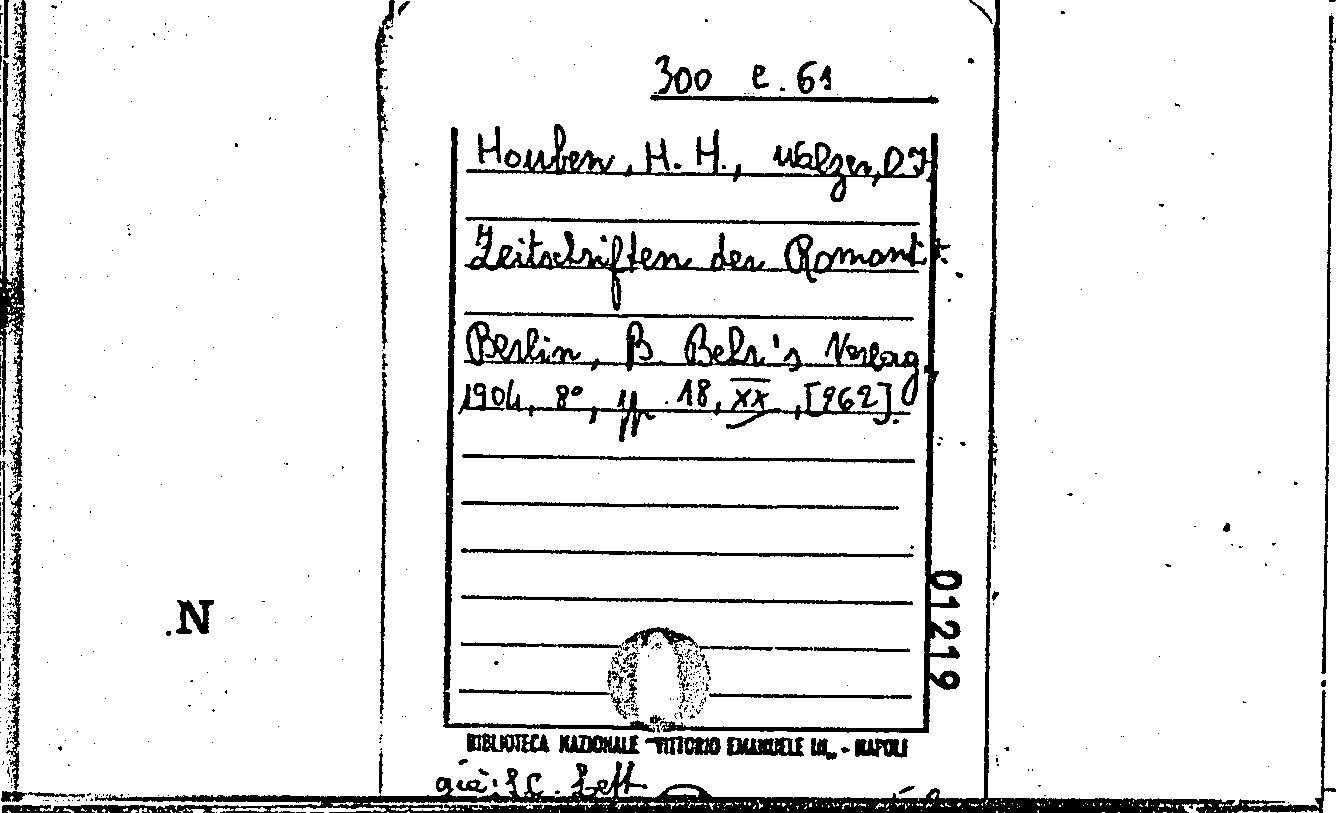 300 e. 61
Houben, H. H., Walzer, O F
Zeitschriften der Romant
Berlin, B. Behr's Verlag,
1904, 8°, pp. 18, XX, [962].
01219
.N
BIBLIOTECA NAZIONALE "VITTORIO EMANUELE III„ - NAPOLI
già: S.C. Lett